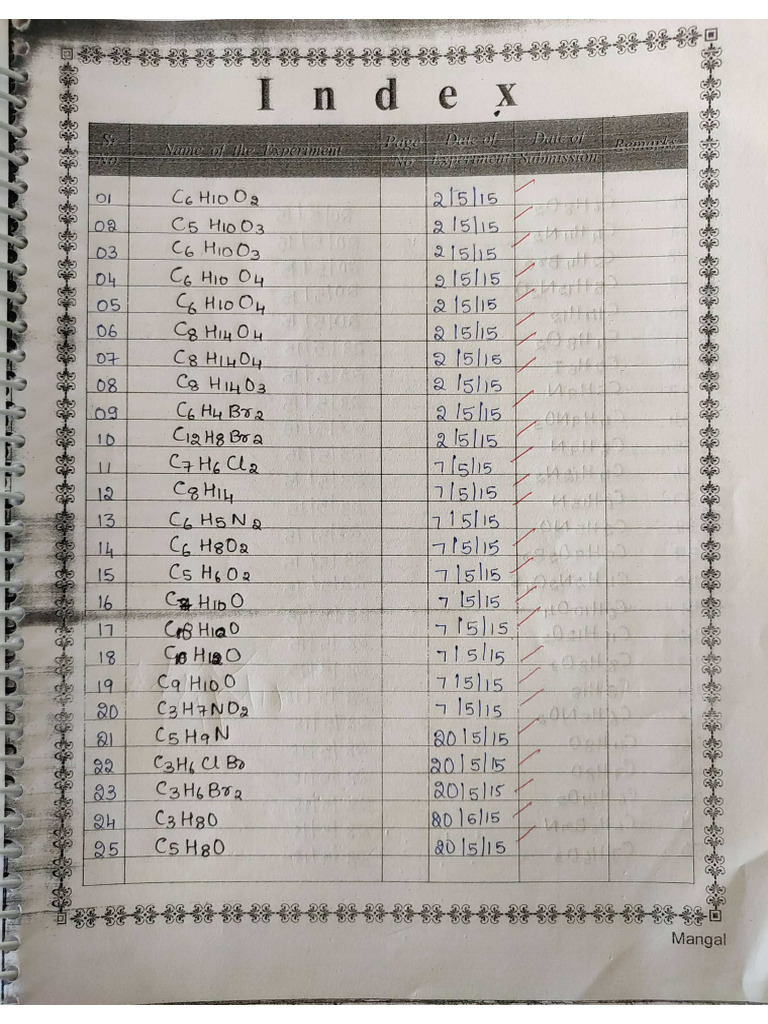 Index
Sr. No. Name of the Experiment Page No. Date of Experiment Date of Submission Remarks
01 C6H10O2 2/5/15
02 C5H10O3 2/5/15
03 C6H10O3 2/5/15
04 C6H10O4 2/5/15
05 C6H10O4 2/5/15
06 C8H14O4 2/5/15
07 C8H14O4 2/5/15
08 C8H14O3 2/5/15
09 C6H4Br2 2/5/15
10 C12H8Br2 2/5/15
11 C7H6Cl2 7/5/15
12 C8H14 7/5/15
13 C6H5N2 7/5/15
14 C6H8O2 7/5/15
15 C5H6O2 7/5/15
16 H10O 7/5/15
17 7/5/15
18 7/5/15
19 C9H10O 7/5/15
20 C3H7NO2 7/5/15
21 C5H9N 20/5/15
22 C3H6ClBr 20/5/15
23 C3H6Br2 20/5/15
24 C3H8O
25 C5H8O 20/5/15
Mangal